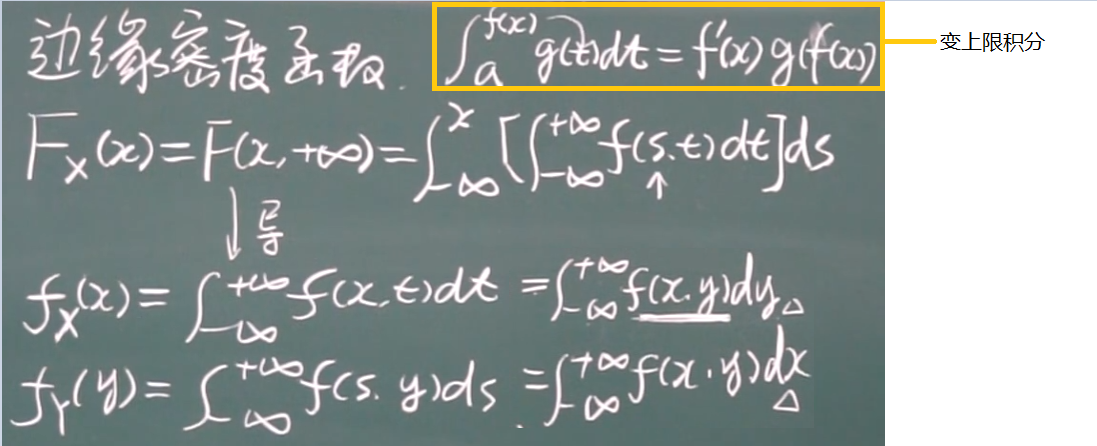 边缘密度函数. ∫_a^{f(x)} g(t)dt = f'(x) g(f(x)) 变上限积分
F_X(x) = F(x,+∞) = ∫_{-∞}^{x} [∫_{-∞}^{+∞} f(s.t)dt]ds
↑
↓导
f_X(x) = ∫_{-∞}^{+∞} f(x,t)dt = ∫_{-∞}^{+∞} f(x.y)dy △
f_Y(y) = ∫_{-∞}^{+∞} f(s.y)ds = ∫_{-∞}^{+∞} f(x.y)dx △